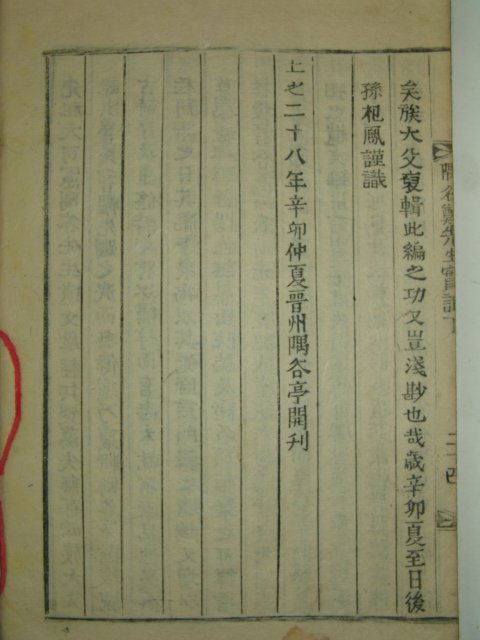 隅谷鄭先生實記下
二十四
矣族大父裒輯此編之功又豈淺尠也哉歲辛卯夏至日後
孫杞鳳謹識
上之二十八年辛卯仲夏晉州隅谷亭開刋